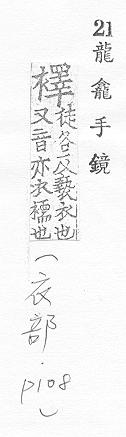 21龍龕手鏡
襗徒各反褻衣也
又音亦衣襦也
(衣部.p108)